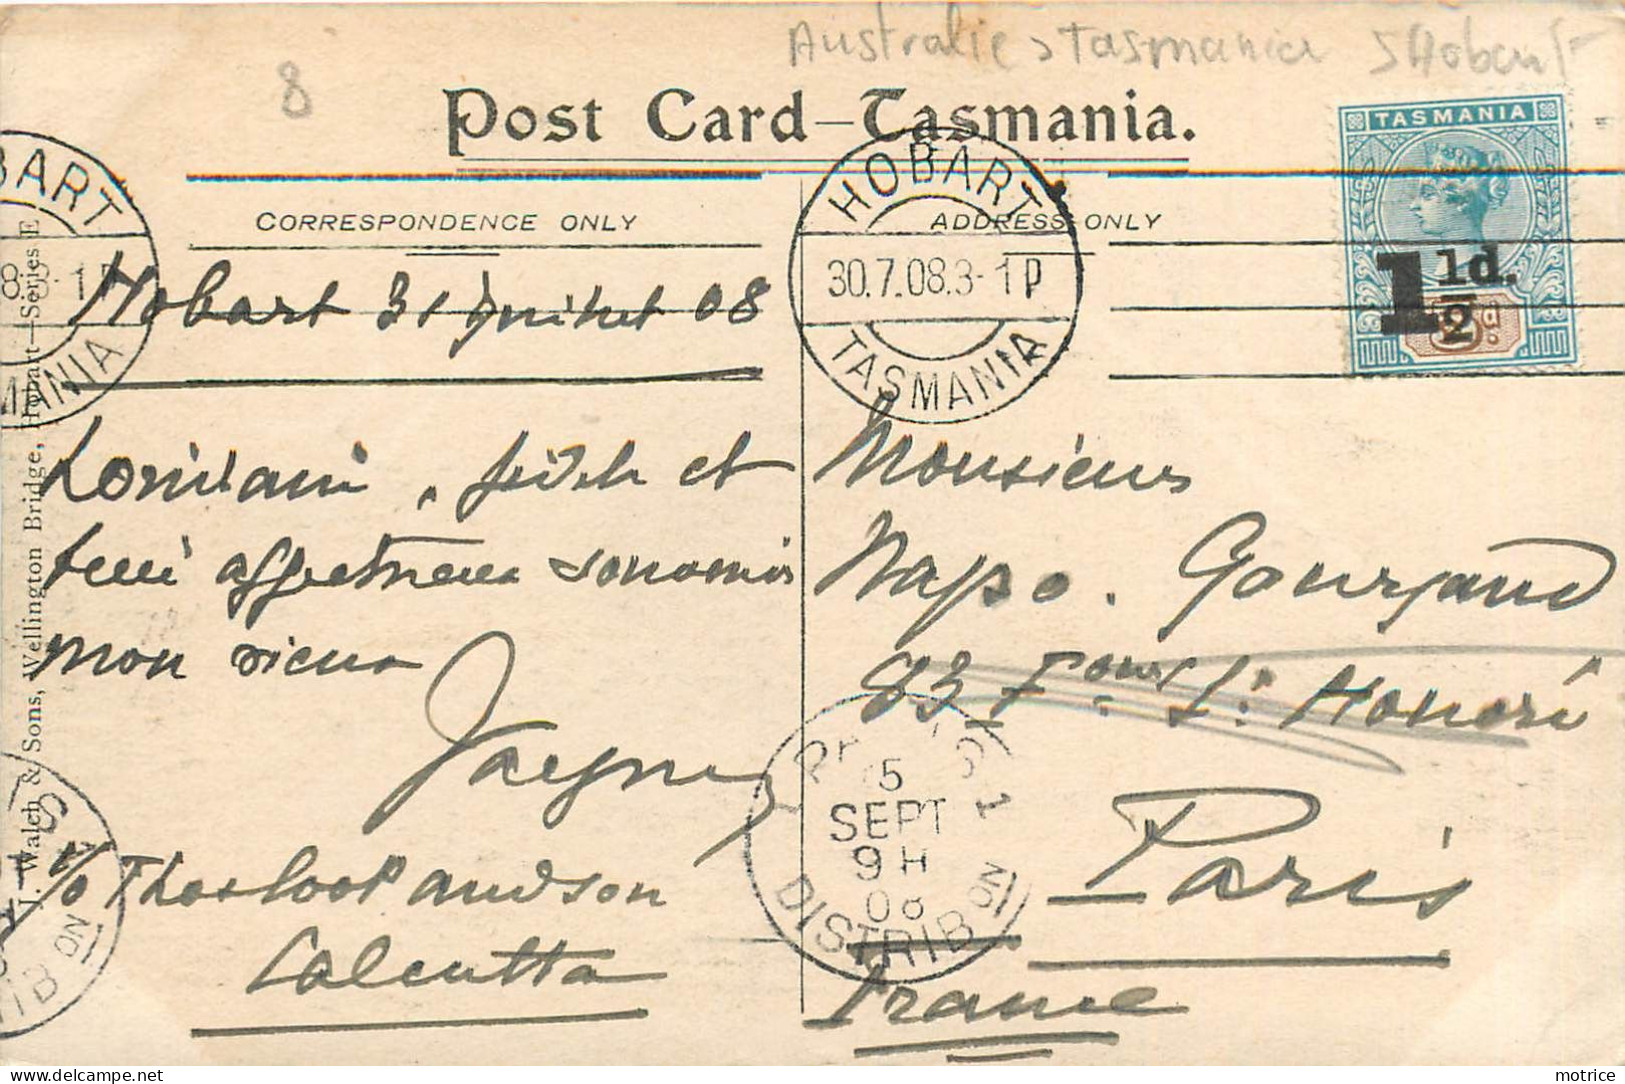 Australie > Tasmania > Hobart
8
Post Card—Tasmania.
CORRESPONDENCE ONLY
ADDRESS ONLY
TASMANIA
1 1/2 1d.
HOBART
30.7.08.3-1P
TASMANIA
BART
MANIA
Hobart 31 juillet 08
Lointain, fidèle et
affectueux souvenir
mon vieux
Jacques
c/o Thos Cook and son
Calcutta
Monsieur
Napo. Gourgaud
83 Fours St Honoré
Paris
France
5
SEPT
9 H
08
DISTRIB ON
J. Walch & Sons, Wellington Bridge, Hobart—Series E
motrice